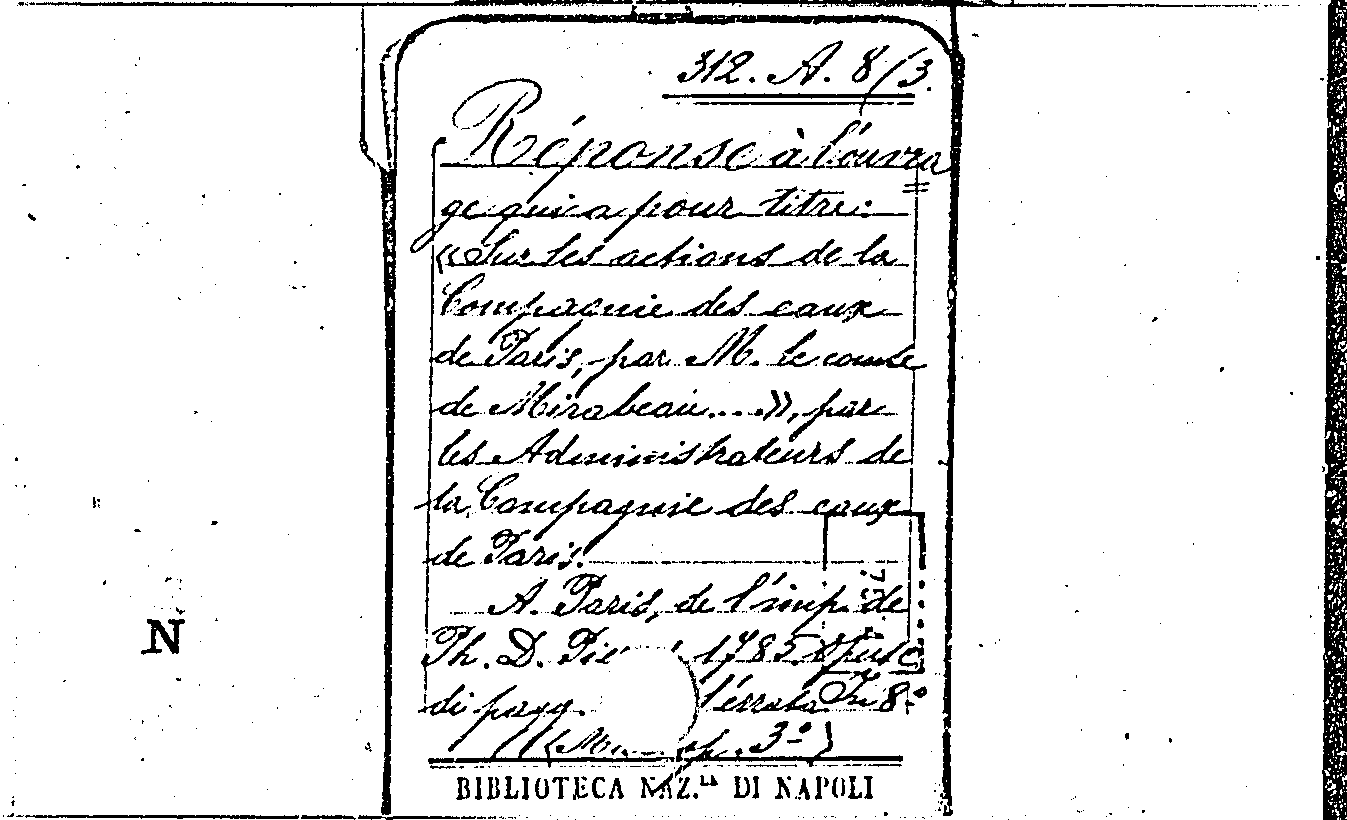 312. A. 8/3.
Réponse à l'ouvra
ge qui a pour titre:
«Sur les actions de la
Compagnie des eaux
de Paris, par M. le comte
de Mirabeau....», par
les Administrateurs de
la Compagnie des eaux
de Paris.
A. Paris, de l'imp. de
Ph. D. 1785
di pagg. l'errata In 8-º
3-º)
N
BIBLIOTECA NAZ.LA DI NAPOLI